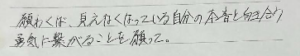 願わくは、見えなくなっている自分の本音と向き合う
勇気に繋がることを願って。